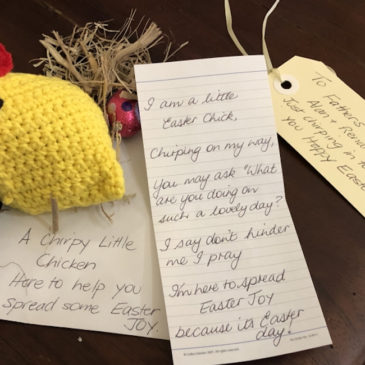 I am a little
Easter Chick,
Chirping on my way,
You may ask "What
are you doing on
such a lovely day?
I say don't hinder
me I pray
I'm here to spread
Easter Joy
because it's Easter
day!
To Father
Alan +
Just chirping in to
you Happy Easter
A Chirpy Little
Chicken
Here to help you
spread some Easter
JOY.